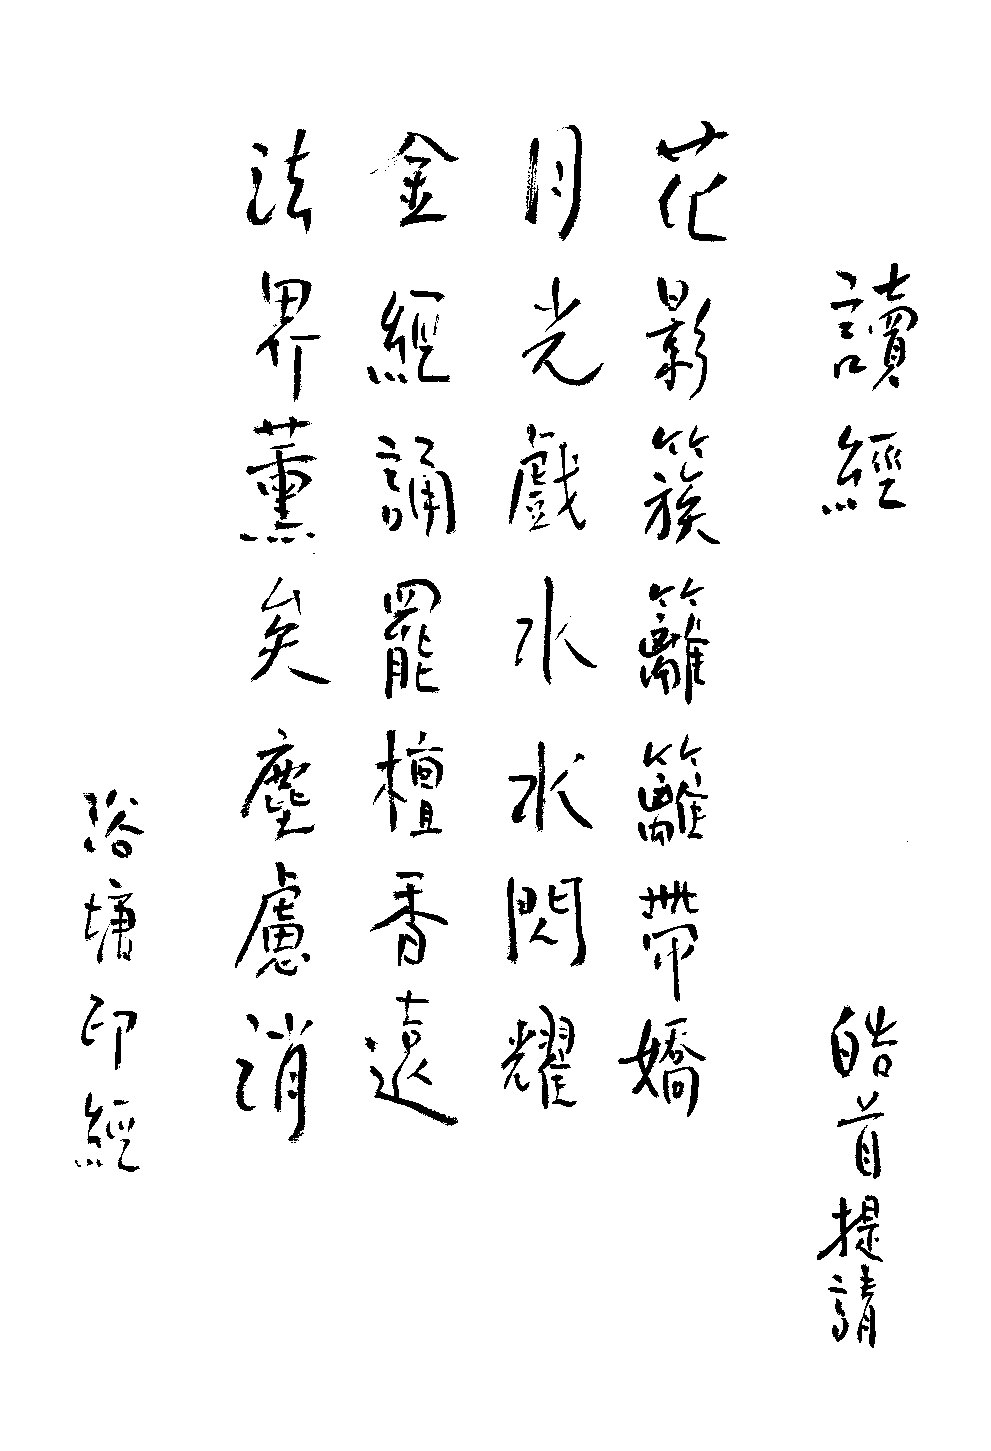 讀經
皓首提請
花影簇籬籬帶嬌
月光戲水水閃耀
金經誦罷檀香遠
法界薰矣塵慮消
浴塘印經